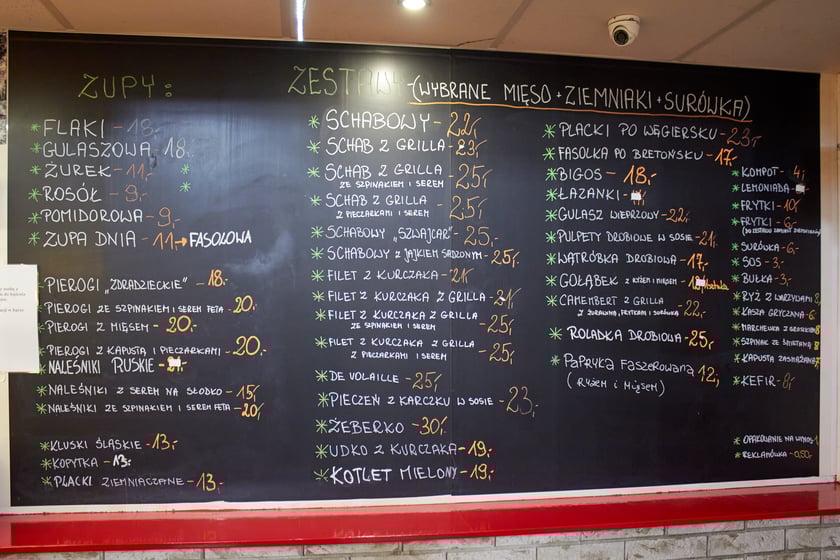 ZUPY:
* FLAKI - 18,-
* GULASZOWA - 18,-
* ŻUREK - 11,-
* ROSÓŁ - 9,-
* POMIDOROWA - 9,-
* ZUPA DNIA - 11 → FASOLOWA
* PIEROGI „ZDRADZIECKIE" - 18,-
* PIEROGI ZE SZPINAKIEM I SEREM FETA - 20,-
* PIEROGI Z MIĘSEM - 20,-
* PIEROGI Z KAPUSTĄ I PIECZARKAMI - 20,-
* NALEŚNIKI RUSKIE
* NALEŚNIKI Z SEREM NA SŁODKO - 15,-
* NALEŚNIKI ZE SZPINAKIEM I SEREM FETA - 20,-
* KLUSKI ŚLĄSKIE - 13,-
* KOPYTKA - 13,-
* PLACKI ZIEMNIACZANE - 13,-
ZESTAWY (WYBRANE MIĘSO + ZIEMNIAKI + SURÓWKA)
* SCHABOWY - 22,-
* SCHAB Z GRILLA - 23,-
* SCHAB Z GRILLA - 25,-
ZE SZPINAKIEM I SEREM
* SCHAB Z GRILLA - 25,-
Z PIECZARKAMI I SEREM
* SCHABOWY „SZWAJCAR" - 25,-
* SCHABOWY Z JAJKIEM SADZONYM - 25,-
* FILET Z KURCZAKA - 21,-
* FILET Z KURCZAKA Z GRILLA - 21,-
* FILET Z KURCZAKA Z GRILLA - 25,-
ZE SZPINAKIEM I SEREM
* FILET Z KURCZAKA Z GRILLA - 25,-
Z PIECZARKAMI I SEREM
* DE VOLAILLE - 25,-
* PIECZEŃ Z KARCZKU W SOSIE - 23,-
* ŻEBERKO - 30,-
* UDKO Z KURCZAKA - 19,-
* KOTLET MIELONY - 19,-
* PLACKI PO WĘGIERSKU - 23,-
* FASOLKA PO BRETOŃSKU - 17,-
* BIGOS - 18,-
* ŁAZANKI -
* GULASZ WIEPRZOWY - 22,-
* PULPETY DROBIOWE W SOSIE - 21,-
* WĄTRÓBKA DROBIOWA - 17,-
* GOŁĄBEK Z RYŻEM I MIĘSEM -
* CAMEMBERT Z GRILLA - 22,-
Z ŻURAWINĄ, FRYTKAMI I SURÓWKĄ
* ROLADKA DROBIOWA - 25,-
* PAPRYKA FASZEROWANA 12,-
(RYŻEM I MIĘSEM)
* KOMPOT - 4,-
* LEMONIADA -
* FRYTKI - 10,-
* FRYTKI - 6,-
(DO ZESTAWU ZAMIAST ZIEMNIAKÓW)
* SURÓWKA - 6,-
* SOS - 3,-
* BUŁKA - 3,-
* RYŻ Z WARZYWAMI
* KASZA GRYCZANA - 6
* MARCHEWKA Z GROSZKIEM
* SZPINAK ZE ŚMIETANĄ
* KAPUSTA ZASMAŻANA
* KEFIR - 8,-
* OPAKOWANIE NA WYNOS
* REKLAMÓWKA - 0,50,-